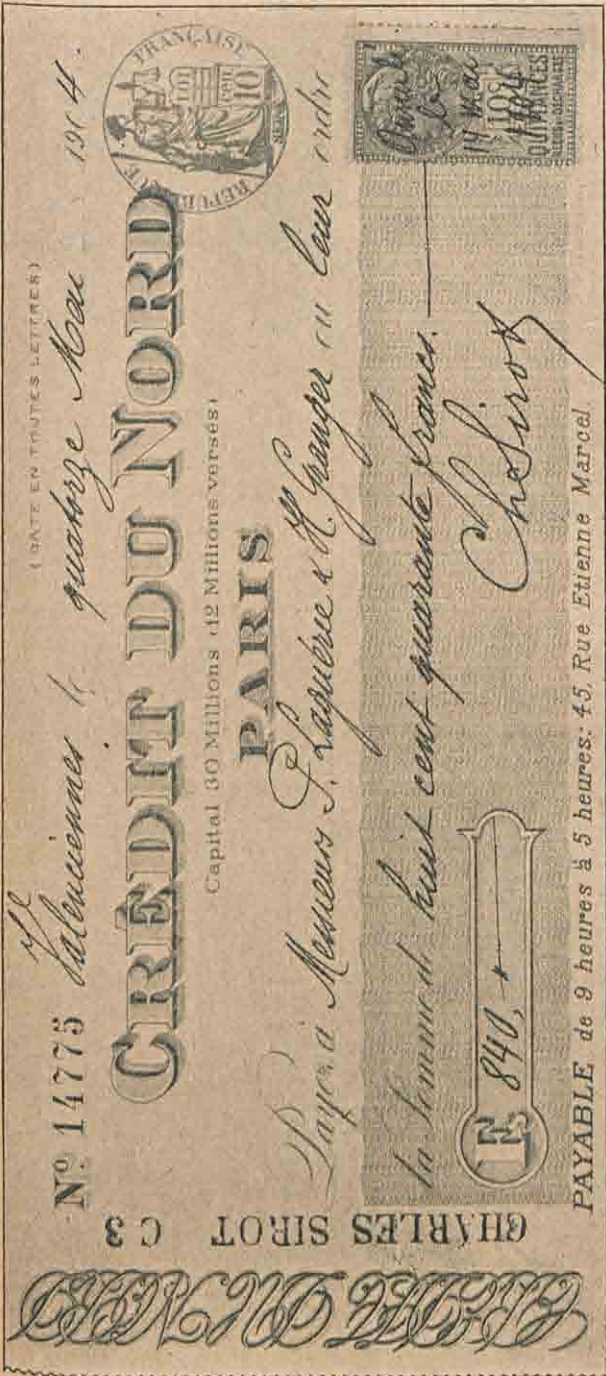 (DATE EN TOUTES LETTRES)
Nº 14775 Valenciennes le quatorze Mai 1914.
CRÉDIT DU NORD
Capital 30 Millions (12 Millions versés)
PARIS
Payez à Messieurs P. Laguérie & H. Granger ou leur ordre
la Somme de huit cent quarante francs.
F. 840,
Ch. Sirot
PAYABLE de 9 heures à 5 heures: 45, Rue Etienne Marcel
CHARLES SIROT C3
CRÉDIT DU NORD
RÉPUBLIQUE FRANÇAISE
LOI
10 cent
14 mai
10c
QUITTANCES
REÇUS & DÉCHARGES